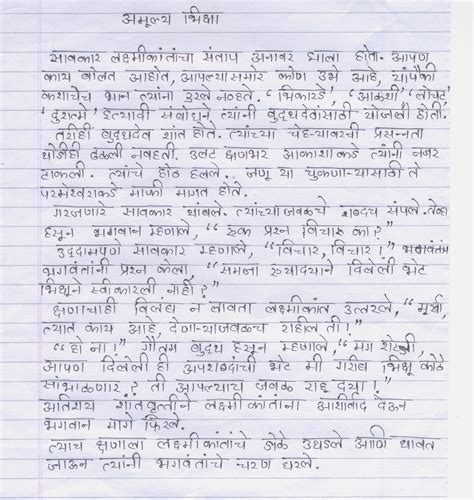 अमूल्य भिक्षा
सावकार लक्ष्मीकांतांचा संताप अनावर झाला होता. आपण
काय बोलत आहोत, आपल्यासमोर कोण उभे आहे, यापैकी
कशाचेच भान त्यांना उरले नव्हते. 'भिकारडे', 'आळशी', 'लोचट'
'दुरात्मे' इत्यादी संबोधने त्यांनी बुद्धदेवांसाठी योजली होती.
तरीही बुद्धदेव शांत होते. त्यांच्या चेहऱ्यावरची प्रसन्नता
थोडीही ढळली नव्हती. उलट क्षणभर आकाशाकडे त्यांनी नजर
टाकली. त्यांचे ओठ हलले. जणू या चुकणाऱ्यासाठी ते
परमेश्वराकडे माफी मागत होते.
गरजणारे सावकार थांबले. त्यांच्याजवळचे शब्दच संपले. तेव्हा
हसून भगवान म्हणाले, "एक प्रश्न विचारू का?"
उद्दामपणे सावकार म्हणाले, "विचार, विचार!"
भगवंतांनी प्रश्न केला, "समजा एखाद्याने दिलेली भेट
भिक्षूने स्वीकारली नाही?"
क्षणाचाही विलंब न लावता लक्ष्मीकांत उत्तरले, "मूर्खा,
त्यात काय आहे, देणाऱ्याजवळच राहील ती!"
"हो ना!" गौतम बुद्ध हसून म्हणाले, "मग शेठजी,
आपण दिलेली ही अपशब्दांची भेट मी गरीब भिक्षू कोठे
सांभाळणार? ती आपल्याच जवळ राहू द्या!"
अतिशय शांतवृत्तीने लक्ष्मीकांतांना आशीर्वाद देऊन
भगवान मागे फिरले.
त्याच क्षणाला लक्ष्मीकांतांचे डोळे उघडले आणि धावत
जाऊन त्यांनी भगवंतांचे चरण धरले.